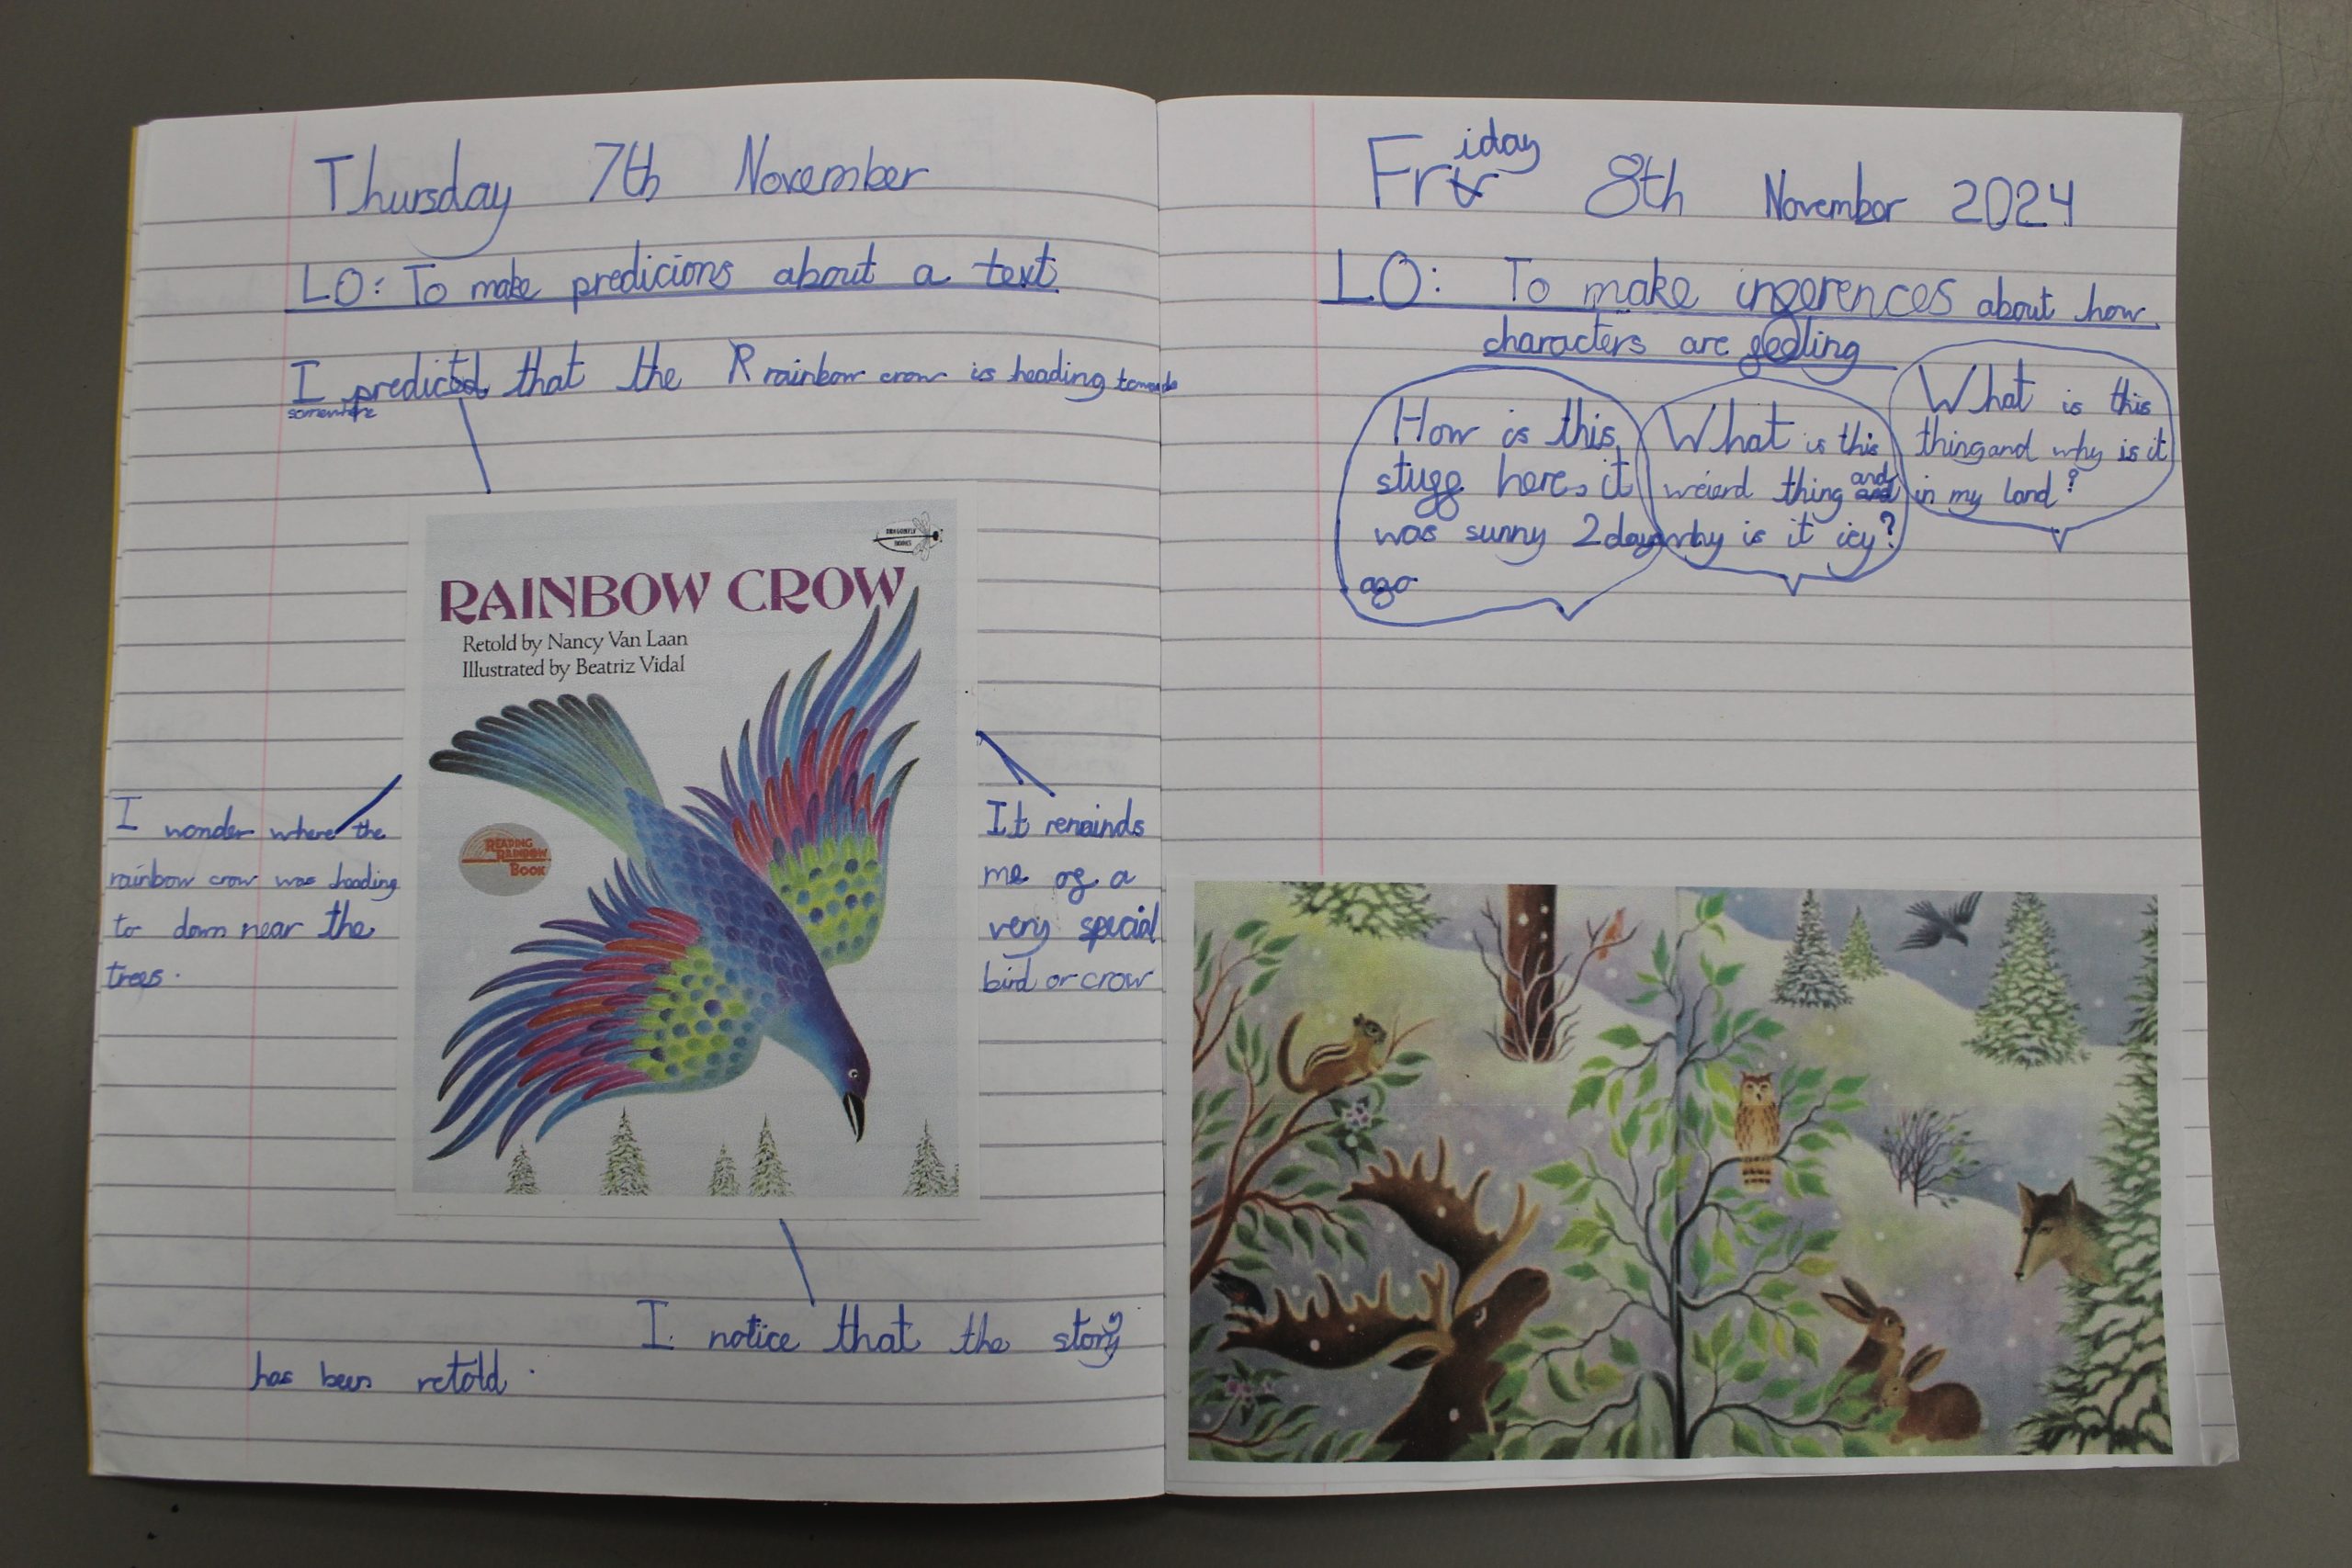 Thursday 7th November
LO: To make predicions about a text
I predicted that the Rrainbow crow is heading towards
somewhere
DRAGONFLY
BOOKS
RAINBOW CROW
Retold by Nancy Van Laan
Illustrated by Beatriz Vidal
READING
RAINBOW
BOOK
I wonder where the
rainbow crow was heading
to down near the
trees.
It remainds
me of a
very special
bird or crow
I notice that the story
has been retold.
Friday 8th November 2024
LO: To make inferences about how
characters are feeling
How is this
stuff here, it
was sunny 2 days
ago
What is this
weierd thing and
why is it icy?
What is this
thing and why is it
in my land?